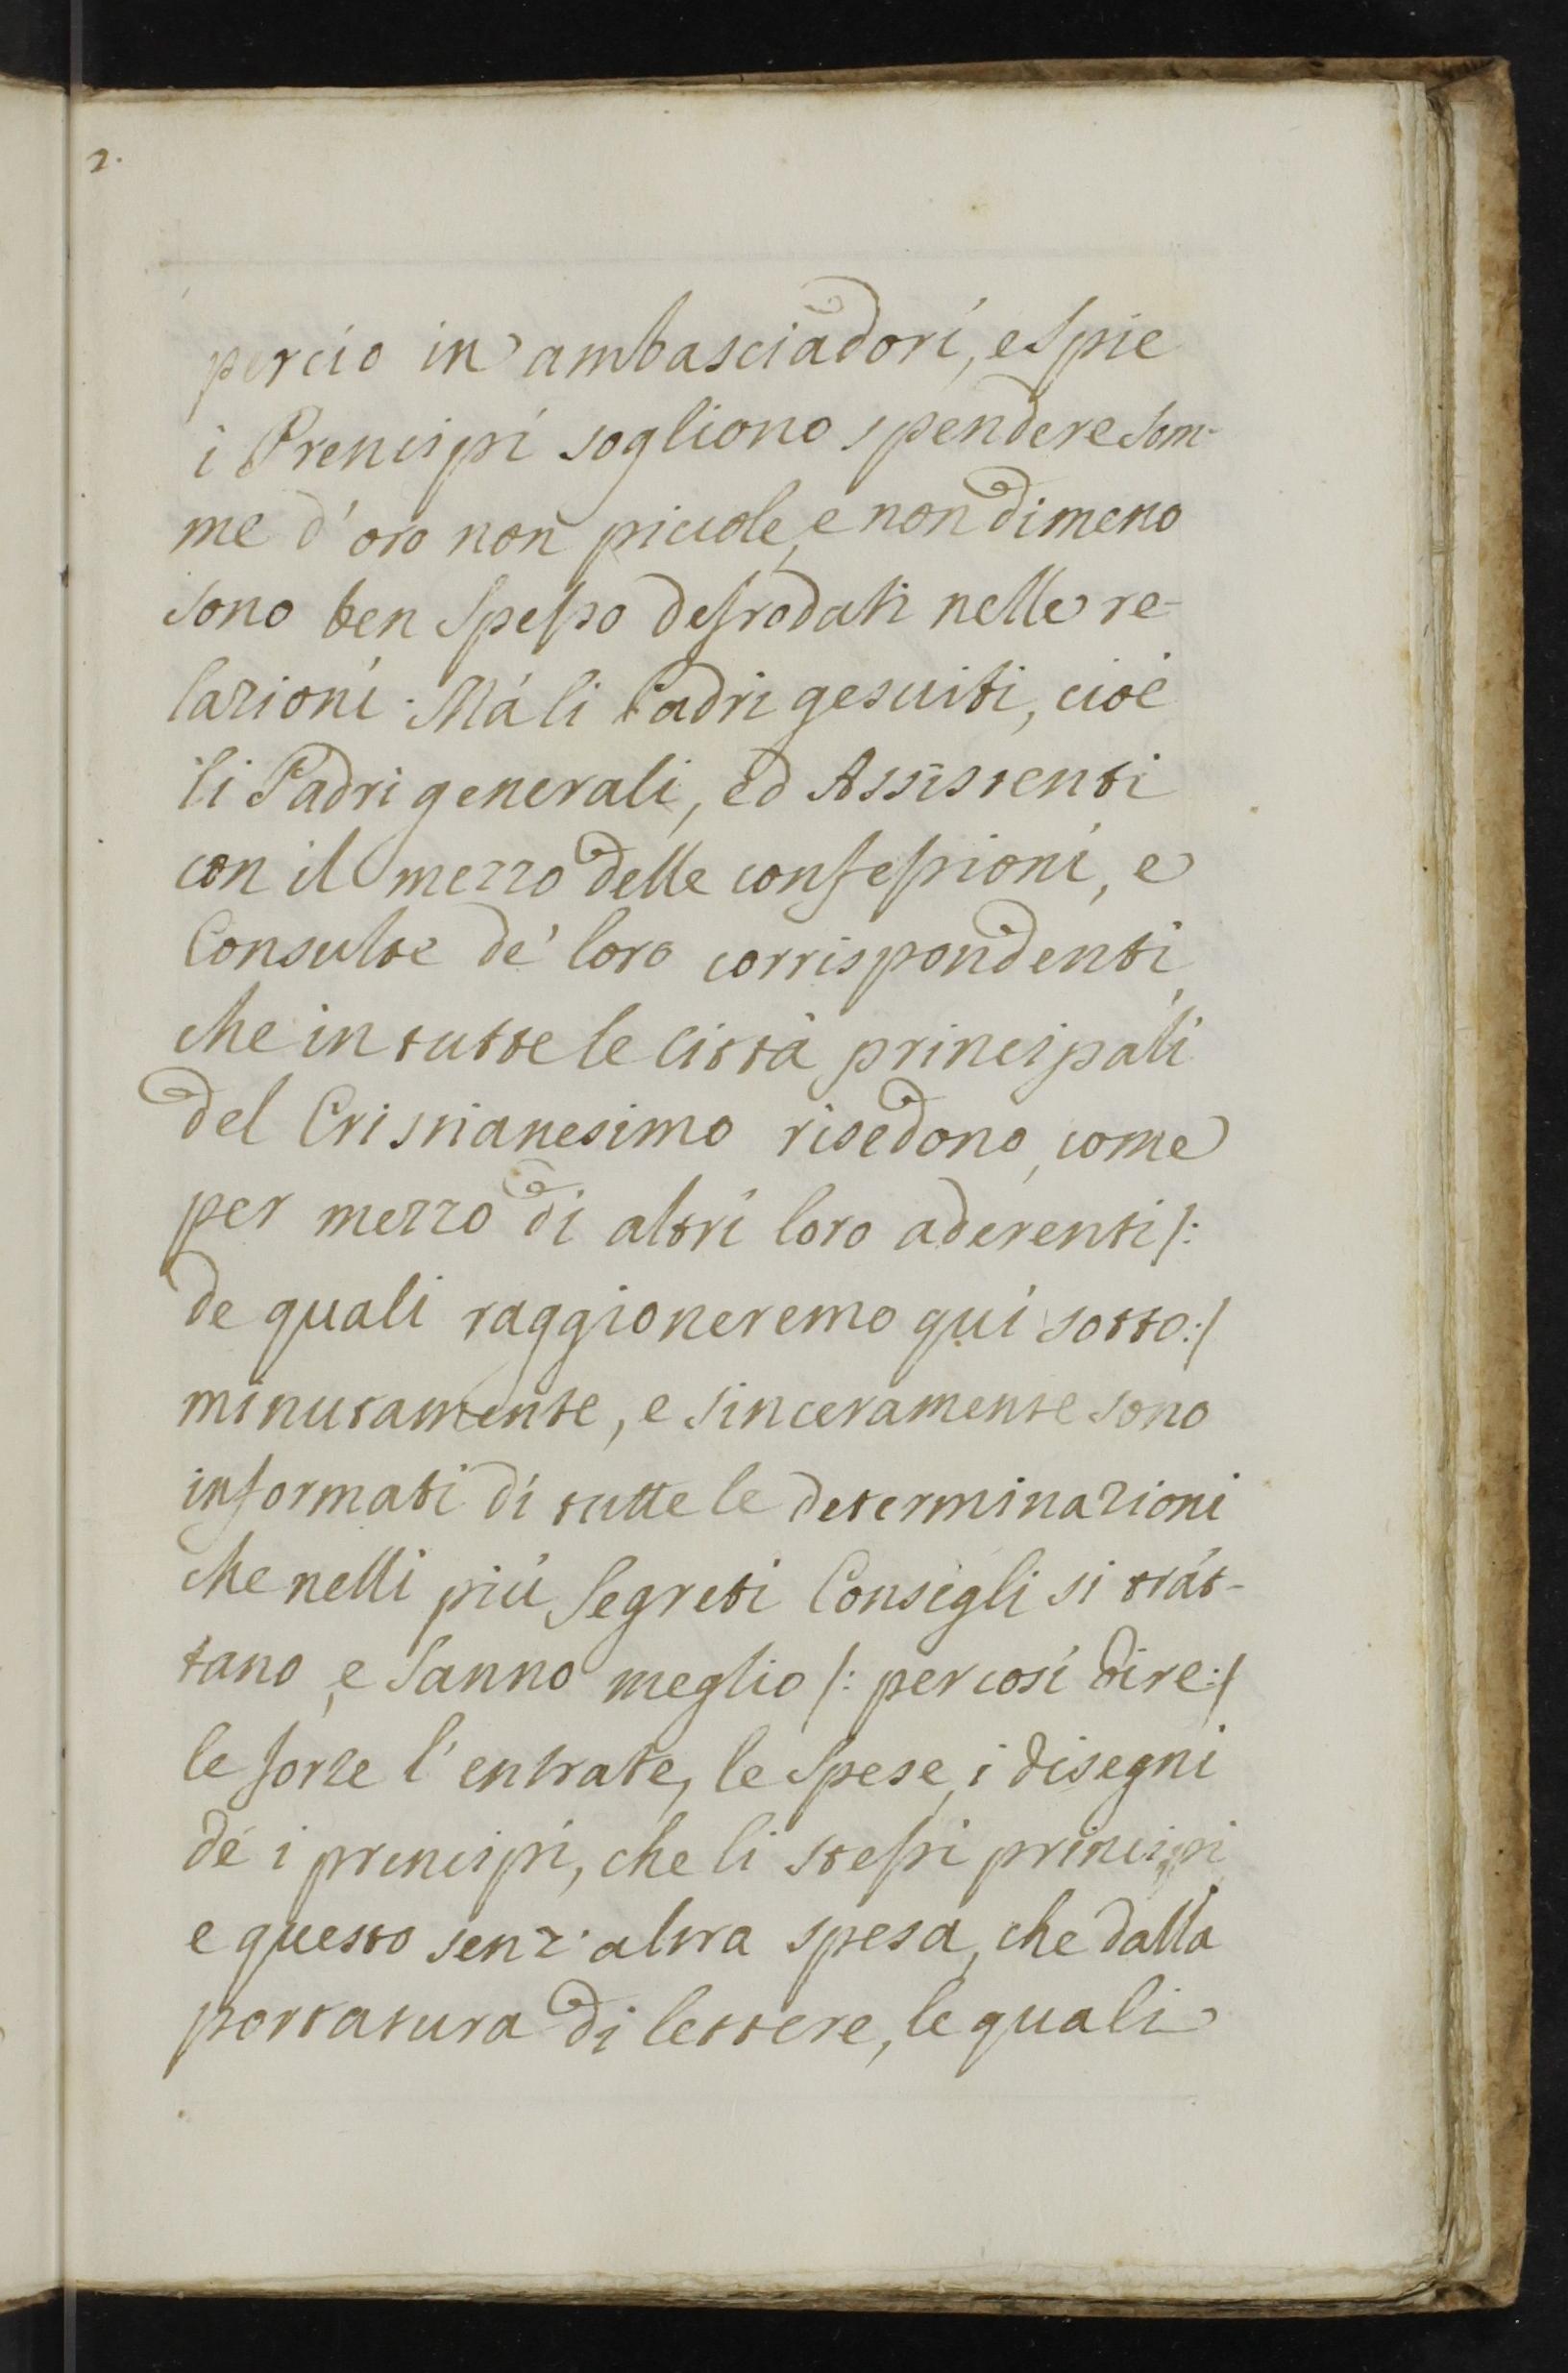 2.
percio in ambasciadori, e spie
i Prencipi sogliono spendere som-
me d'oro non picciole, e non dimeno
sono ben spesso defrodati nelle re-
lazioni. Má li Padri gesuiti, cioè
li Padri generali, ed Assistenti
con il mezzo delle confessioni, e
Consulte de' loro corrispondenti,
che in tutte le Città principali
del Cristianesimo risedono, come
per mezzo di altri loro aderenti /:
de quali raggioneremo qui sotto :/
minutamente, e sinceramente sono
informati di tutte le determinazioni
che nelli più segreti Consigli si trát-
tano, e sanno meglio /: per così dire :/
le forze l'entrate, le spese, i disegni
dé i prencipi, che li stessi principi
e questo senz'altra spesa, che dalla
portatura di lettere, le quali